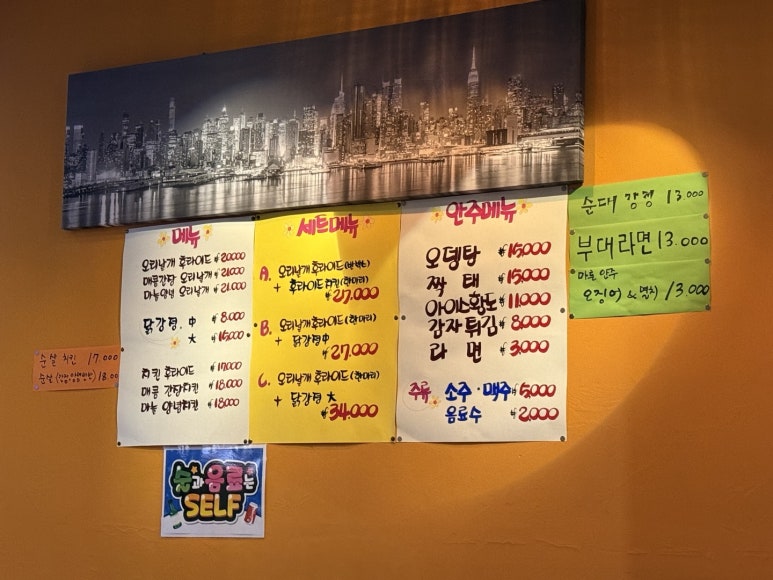 메뉴
오리날개 후라이드 ₩20000
매콤간장 오리날개 ₩21.000
마늘양념 오리날개 ₩21.000
닭강정. 中 ₩8.000
大 ₩15.000
치킨 후라이드 ₩17.000
매콤 간장치킨 ₩18.000
마늘 양념치킨 ₩18.000
세트메뉴
A. 오리날개 후라이드(반마리)
+ 후라이드 치킨(한마리)
₩27.000
B. 오리날개 후라이드(한마리)
+ 닭강정 中
₩27.000
C. 오리날개 후라이드(한마리)
+ 닭강정 大
₩34.000
안주메뉴
오뎅탕 ₩15.000
짝 태 ₩15.000
아이스황도 ₩11.000
감자튀김 ₩8.000
라 면 ₩3.000
주류 소주·맥주 ₩5.000
음료수 ₩2.000
순대 강정 13.000
부대라면 13.000
마른 안주
오징어 & 멸치 13.000
순살 치킨 17.000
순살 18.000
술과 음료는
SELF